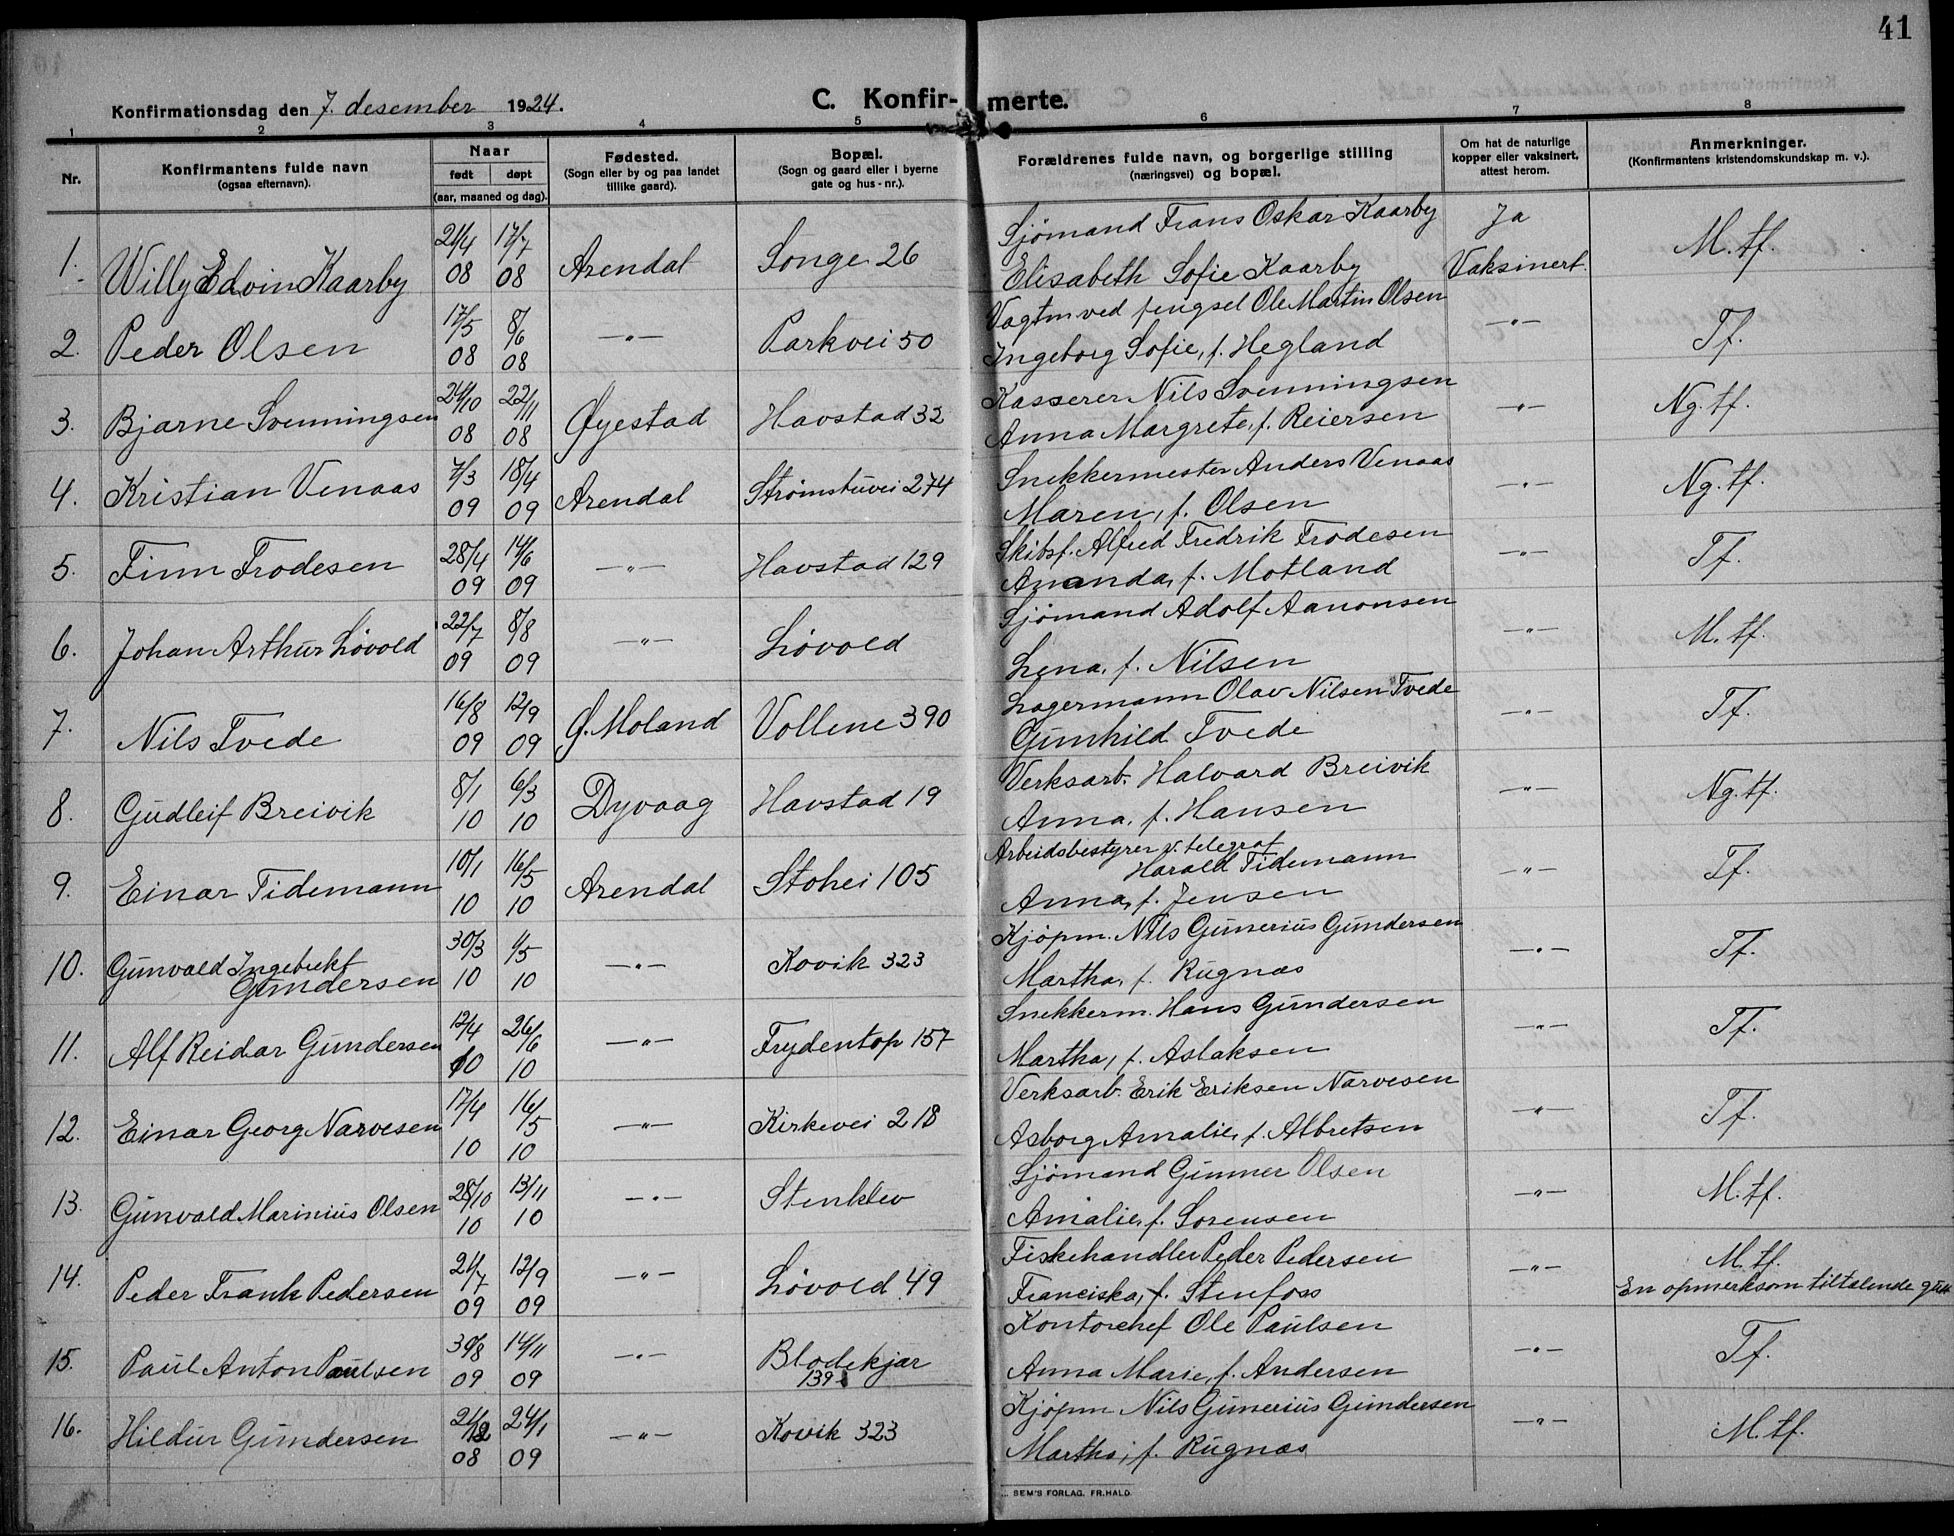 41
Konfirmationsdag den 7. desember 1924. C. Konfir- merte.
1 2 3 4 5 6 7 8
Nr. Konfirmantens fulde navn (ogsaa efternavn). Naar født døpt (aar, maaned og dag). Fødested. (Sogn eller by og paa landet tillike gaard). Bopæl. (Sogn og gaard eller i byerne gate og hus-nr.). Forældrenes fulde navn, og borgerlige stilling (næringsvei) og bopæl. Om hat de naturlige kopper eller vaksinert, attest herom. Anmerkninger. (Konfirmantens kristendomskundskap m. v.).
1. Willy Edvin Kaarby 21/4 08 17/7 08 Arendal Songe 26 Sjømand Frans Oskar Kaarby Ja M.tf.
Elisabeth Sofie Kaarby Vaksinert.
2. Peder Olsen 17/5 08 8/6 08 —"— Parkvei 50 Vagtm ved fengsel Ole Martin Olsen —"— Tf.
Ingeborg Sofie, f. Hegland
3. Bjarne Svenningsen 24/10 08 22/11 08 Øyestad Havstad 32 Kasserer Nils Svenningsen —"— Ng.tf.
Anna Margrete, f. Reiersen
4. Kristian Venaas 7/3 09 18/4 09 Arendal Strømsbuvei 274 Snekkermester Anders Venaas —"— Ng.tf.
Maren, f. Olsen
5. Finn Frodesen 28/4 09 14/6 09 —"— Havstad 129 Skibsf. Alfred Fredrik Frodesen —"— Tf.
Amanda, f. Motland
6. Johan Arthur Løvold 22/7 09 8/8 09 —"— Løvold Sjømand Adolf Aanonsen —"— M.tf.
Lena, f. Nilsen
7. Nils Tvede 16/8 09 12/9 09 Ø. Moland Vollene 390 Lagermann Olav Nilsen Tvede —"— Tf.
Gunhild Tvede
8. Gudleif Breivik 8/1 10 6/3 10 Dyvaag Havstad 19 Verksarb. Halvard Breivik —"— Ng.tf.
Anna, f. Hansen
9. Einar Tidemann 10/1 10 16/5 10 Arendal Stohei 105 Arbeidsbestyrer v. telegraf —"— Tf.
Harald Tidemann
Anna, f. Jensen
10. Gunvald Ingebrekt Gundersen 30/3 10 1/5 10 —"— Kovik 323 Kjøpm. Nils Gunerius Gundersen —"— Tf.
Martha, f. Rugnæs
11. Alf Reidar Gundersen 12/4 10 26/6 10 —"— Frydentop 157 Snekkerm. Hans Gundersen —"— Tf.
Martha, f. Aslaksen
12. Einar Georg Narvesen 17/4 10 16/5 10 —"— Kirkevei 218 Verksarb. Erik Eriksen Narvesen —"— Tf.
Asborg Amalie, f. Albretsen
13. Gunvald Marinius Olsen 28/10 10 13/11 10 —"— Stenklev Sjømand Gunner Olsen —"— M.tf.
Amalie, f. Sorensen
14. Peder Frank Pedersen 21/7 09 12/9 09 —"— Løvold 49 Fiskehandler Peder Pedersen —"— M.tf.
Franciska, f. Stenfoss En opmerksom tiltalende gut
15. Paul Anton Paulsen 30/8 09 14/11 09 —"— Blodekjær 139 Kontorchef Ole Paulsen —"— Tf.
Anna Marie, f. Andersen
16. Hildur Gundersen 21/12 08 24/1 09 —"— Kovik 323 Kjøpm Nils Gunerius Gundersen —"— M.tf.
Martha, f. Rugnæs
SEM'S FORLAG, FR.HALD